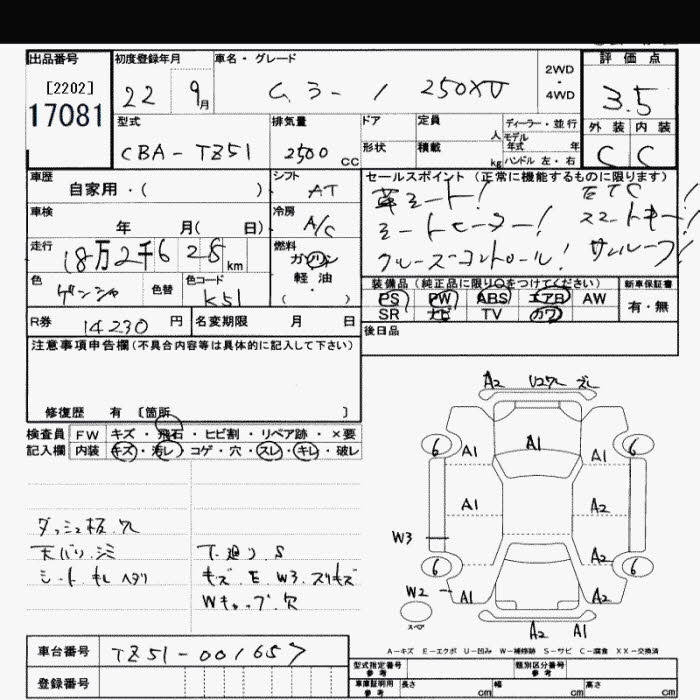 出品番号 初度登録年月 車名・グレード 2WD・4WD 評価点
[2202]
17081
22 9月 ムラーノ 250XV 3.5
型式 排気量 ドア 定員 人 ディーラー・並行 外装 内装
CBA-TZ51 2500 CC 形状 積載 kg モデル年式 年 ハンドル 左・右 C C
車歴 シフト セールスポイント(正常に機能するものに限ります)
自家用・( ) AT 革シート! ETC!
車検 冷房 シートヒーター! スマートキー!
年 月( 日) A/C クルーズコントロール! サンルーフ!
走行 燃料
18万2千628km ガソリン
色 色替 色コード 軽・油 装備品(純正品に限り○をつけてください) 新車保証書
ゲンシャ K51 ( ) PS PW ABS エアB AW 有・無
R券 14230円 名変期限 月 日 SR ナビ TV カワ
後日品
注意事項申告欄(不具合内容等は具体的に記入して下さい)
修復歴 有 〔箇所 〕
検査員 FW キズ・飛石・ヒビ割・リペア跡・×要
記入欄 内装 キズ・汚レ・コゲ・穴・スレ・キレ・破レ
ダッシュ板穴
天バリ シミ 下廻り S
シート キレ ヘタリ キズ E W3 スリキズ
Wキャップ 欠
A2 U2ワレ ズレ
6 A1 A1 A1 6
A1 A2
W3 A2
6 6
W2 A1 A2
スペア A2 A1
A-キズ E-エクボ U-凹み W-補修跡 S-サビ C-腐食 XX-交換済
車台番号 TZ51-001657 型式指定番号 参考 類別区分番号 参考
登録番号 車庫証明用 参考 長さ cm 幅 cm 高さ cm